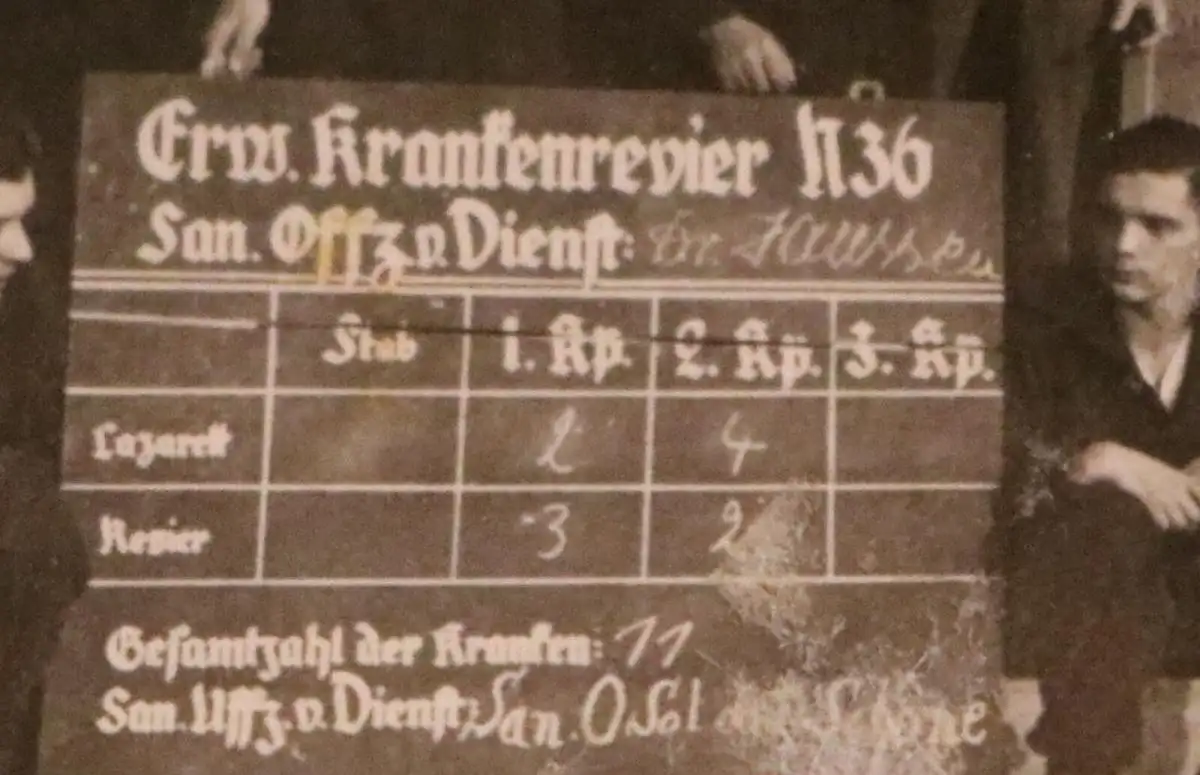 Erw. Krankenrevier N36
San. Offz. v. Dienst: Dr.
Stab 1. Kp. 2. Kp. 3. Kp.
Lazarett 2 4
Revier 3 2
Gesamtzahl der Kranken: 11
San. Uffz. v. Dienst: San. O Sol